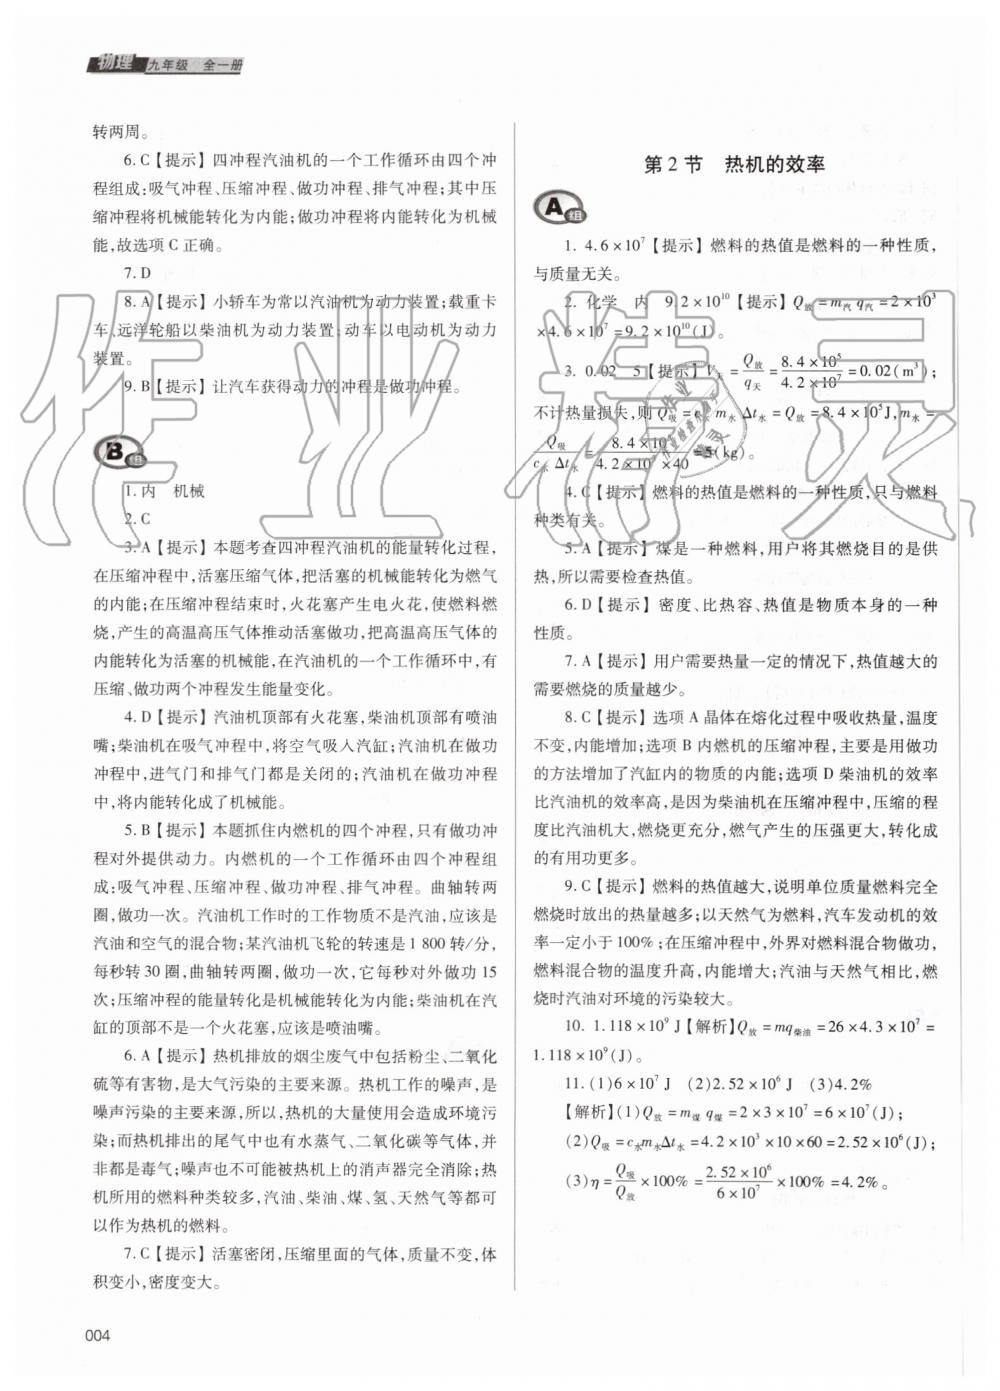 物理 九年级 全一册
转两周。
6. C【提示】四冲程汽油机的一个工作循环由四个冲
程组成:吸气冲程、压缩冲程、做功冲程、排气冲程;其中压
缩冲程将机械能转化为内能;做功冲程将内能转化为机械
能,故选项 C 正确。
7. D
8. A【提示】小轿车为常以汽油机为动力装置;载重卡
车、远洋轮船以柴油机为动力装置;动车以电动机为动力
装置。
9. B【提示】让汽车获得动力的冲程是做功冲程。
B组
1. 内 机械
2. C
3. A【提示】本题考查四冲程汽油机的能量转化过程,
在压缩冲程中,活塞压缩气体,把活塞的机械能转化为燃气
的内能;在压缩冲程结束时,火花塞产生电火花,使燃料燃
烧,产生的高温高压气体推动活塞做功,把高温高压气体的
内能转化为活塞的机械能,在汽油机的一个工作循环中,有
压缩、做功两个冲程发生能量变化。
4. D【提示】汽油机顶部有火花塞,柴油机顶部有喷油
嘴;柴油机在吸气冲程中,将空气吸入汽缸;汽油机在做功
冲程中,进气门和排气门都是关闭的;汽油机在做功冲程
中,将内能转化成了机械能。
5. B【提示】本题抓住内燃机的四个冲程,只有做功冲
程对外提供动力。内燃机的一个工作循环由四个冲程组
成:吸气冲程、压缩冲程、做功冲程、排气冲程。曲轴转两
圈,做功一次。汽油机工作时的工作物质不是汽油,应该是
汽油和空气的混合物;某汽油机飞轮的转速是 1 800 转/分,
每秒转 30 圈,曲轴转两圈,做功一次,它每秒对外做功 15
次;压缩冲程的能量转化是机械能转化为内能;柴油机在汽
缸的顶部不是一个火花塞,应该是喷油嘴。
6. A【提示】热机排放的烟尘废气中包括粉尘、二氧化
硫等有害物,是大气污染的主要来源。热机工作的噪声,是
噪声污染的主要来源,所以,热机的大量使用会造成环境污
染;而热机排出的尾气中也有水蒸气、二氧化碳等气体,并
非都是毒气;噪声也不可能被热机上的消声器完全消除;热
机所用的燃料种类较多,汽油、柴油、煤、氢、天然气等都可
以作为热机的燃料。
7. C【提示】活塞密闭,压缩里面的气体,质量不变,体
积变小,密度变大。
004
第 2 节 热机的效率
A组
1. 4.6×10⁷【提示】燃料的热值是燃料的一种性质,
与质量无关。
2. 化学 内 9.2×10¹⁰【提示】Q放=m汽 q汽=2×10³
×4.6×10⁷=9.2×10¹⁰(J)。
3. 0.02 5【提示】V天=Q放/q天=8.4×10⁵/4.2×10⁷=0.02(m³);
不计热量损失,则 Q吸=c水 m水 Δt水=Q放=8.4×10⁵J,m水=
Q吸/c水 Δt水=8.4×10⁵/4.2×10³×40=5(kg)。
4. C【提示】燃料的热值是燃料的一种性质,只与燃料
种类有关。
5. A【提示】煤是一种燃料,用户将其燃烧目的是供
热,所以需要检查热值。
6. D【提示】密度、比热容、热值是物质本身的一种
性质。
7. A【提示】用户需要热量一定的情况下,热值越大的
需要燃烧的质量越少。
8. C【提示】选项 A 晶体在熔化过程中吸收热量,温度
不变,内能增加;选项 B 内燃机的压缩冲程,主要是用做功
的方法增加了汽缸内的物质的内能;选项 D 柴油机的效率
比汽油机的效率高,是因为柴油机在压缩冲程中,压缩的程
度比汽油机大,燃烧更充分,燃气产生的压强更大,转化成
的有用功更多。
9. C【提示】燃料的热值越大,说明单位质量燃料完全
燃烧时放出的热量越多;以天然气为燃料,汽车发动机的效
率一定小于 100%;在压缩冲程中,外界对燃料混合物做功,
燃料混合物的温度升高,内能增大;汽油与天然气相比,燃
烧时汽油对环境的污染较大。
10. 1.118×10⁹ J【解析】Q放=mq柴油=26×4.3×10⁷=
1.118×10⁹(J)。
11. (1)6×10⁷ J (2)2.52×10⁶ J (3)4.2%
【解析】(1)Q放=m煤 q煤=2×3×10⁷=6×10⁷(J);
(2)Q吸=c水m水Δt水=4.2×10³×10×60=2.52×10⁶(J);
(3)η=Q吸/Q放×100%=2.52×10⁶/6×10⁷×100%=4.2%。
作业精灵